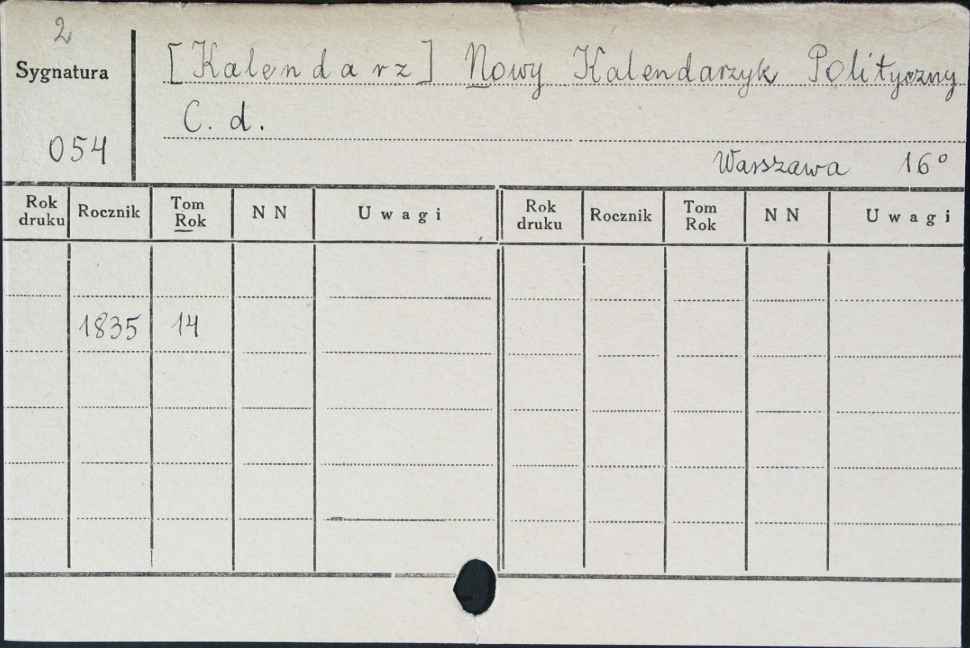 2
Sygnatura
[Kalendarz] Nowy Kalendarzyk Polityczny
C. d.
054
Warszawa 16°
Rok druku Rocznik Tom Rok N N Uwagi Rok druku Rocznik Tom Rok N N Uwagi
1835 14